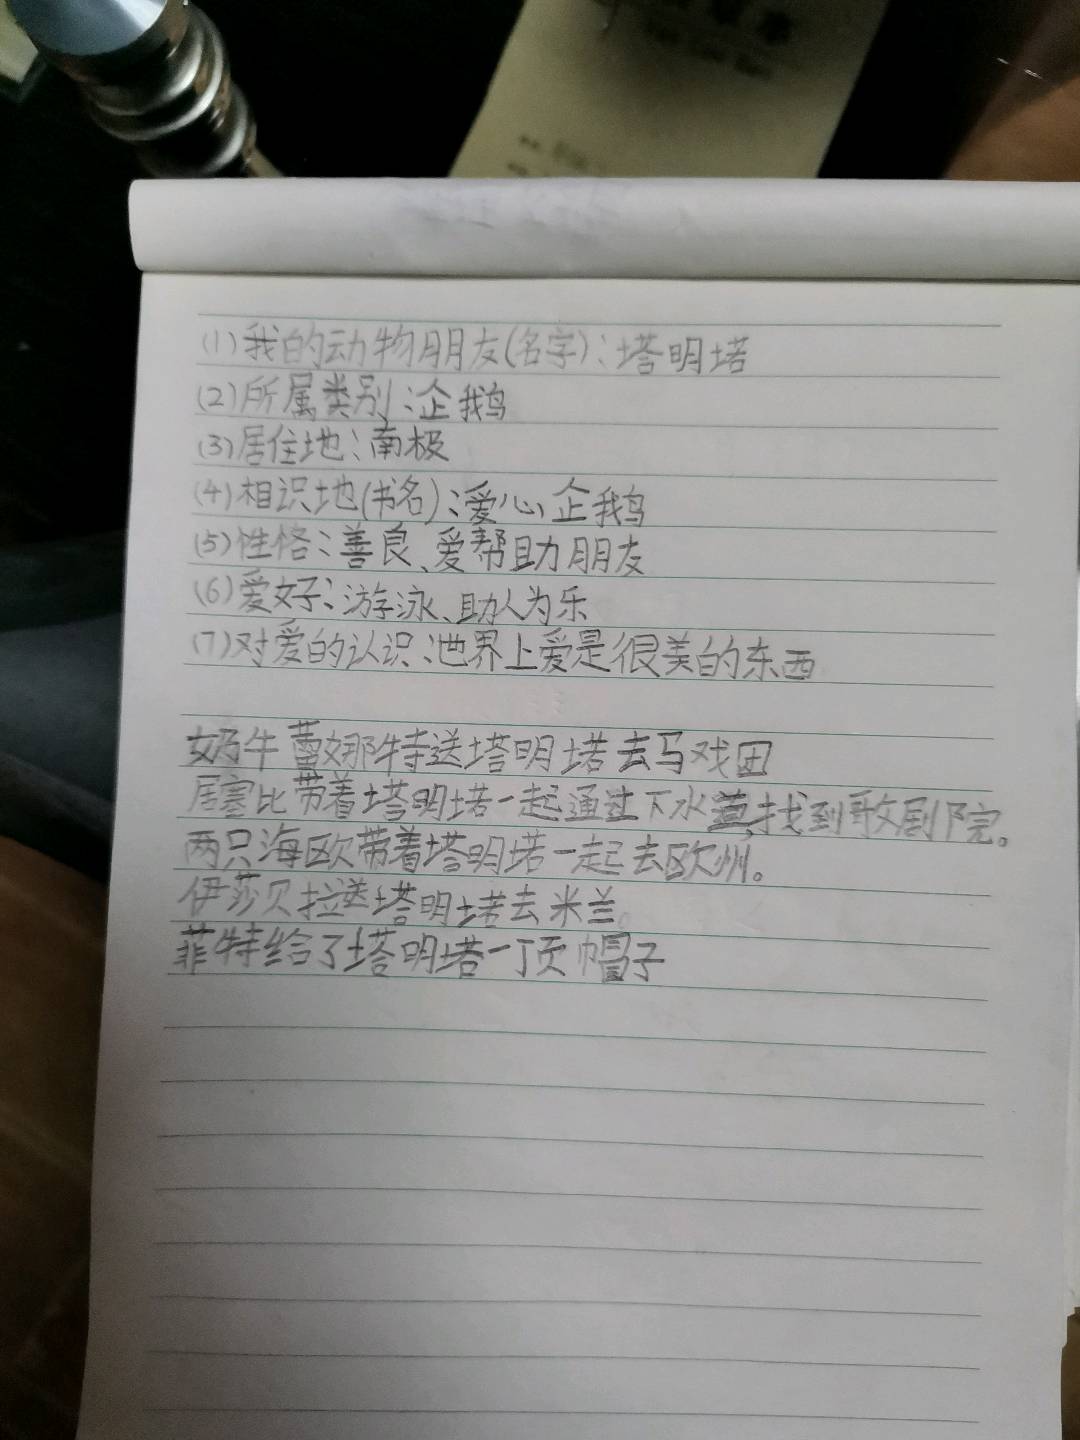 (1)我的动物朋友(名字):塔明塔
(2)所属类别:企鹅
(3)居住地:南极
(4)相识地(书名):爱心企鹅
(5)性格:善良、爱帮助朋友
(6)爱好:游泳、助人为乐
(7)对爱的认识:世界上爱是很美的东西
奶牛蕾娜特送塔明塔去马戏团
居塞比带着塔明塔一起通过下水道,找到歌剧院。
两只海欧带着塔明塔一起去欧州。
伊莎贝拉送塔明塔去米兰。
菲特给了塔明塔一顶帽子